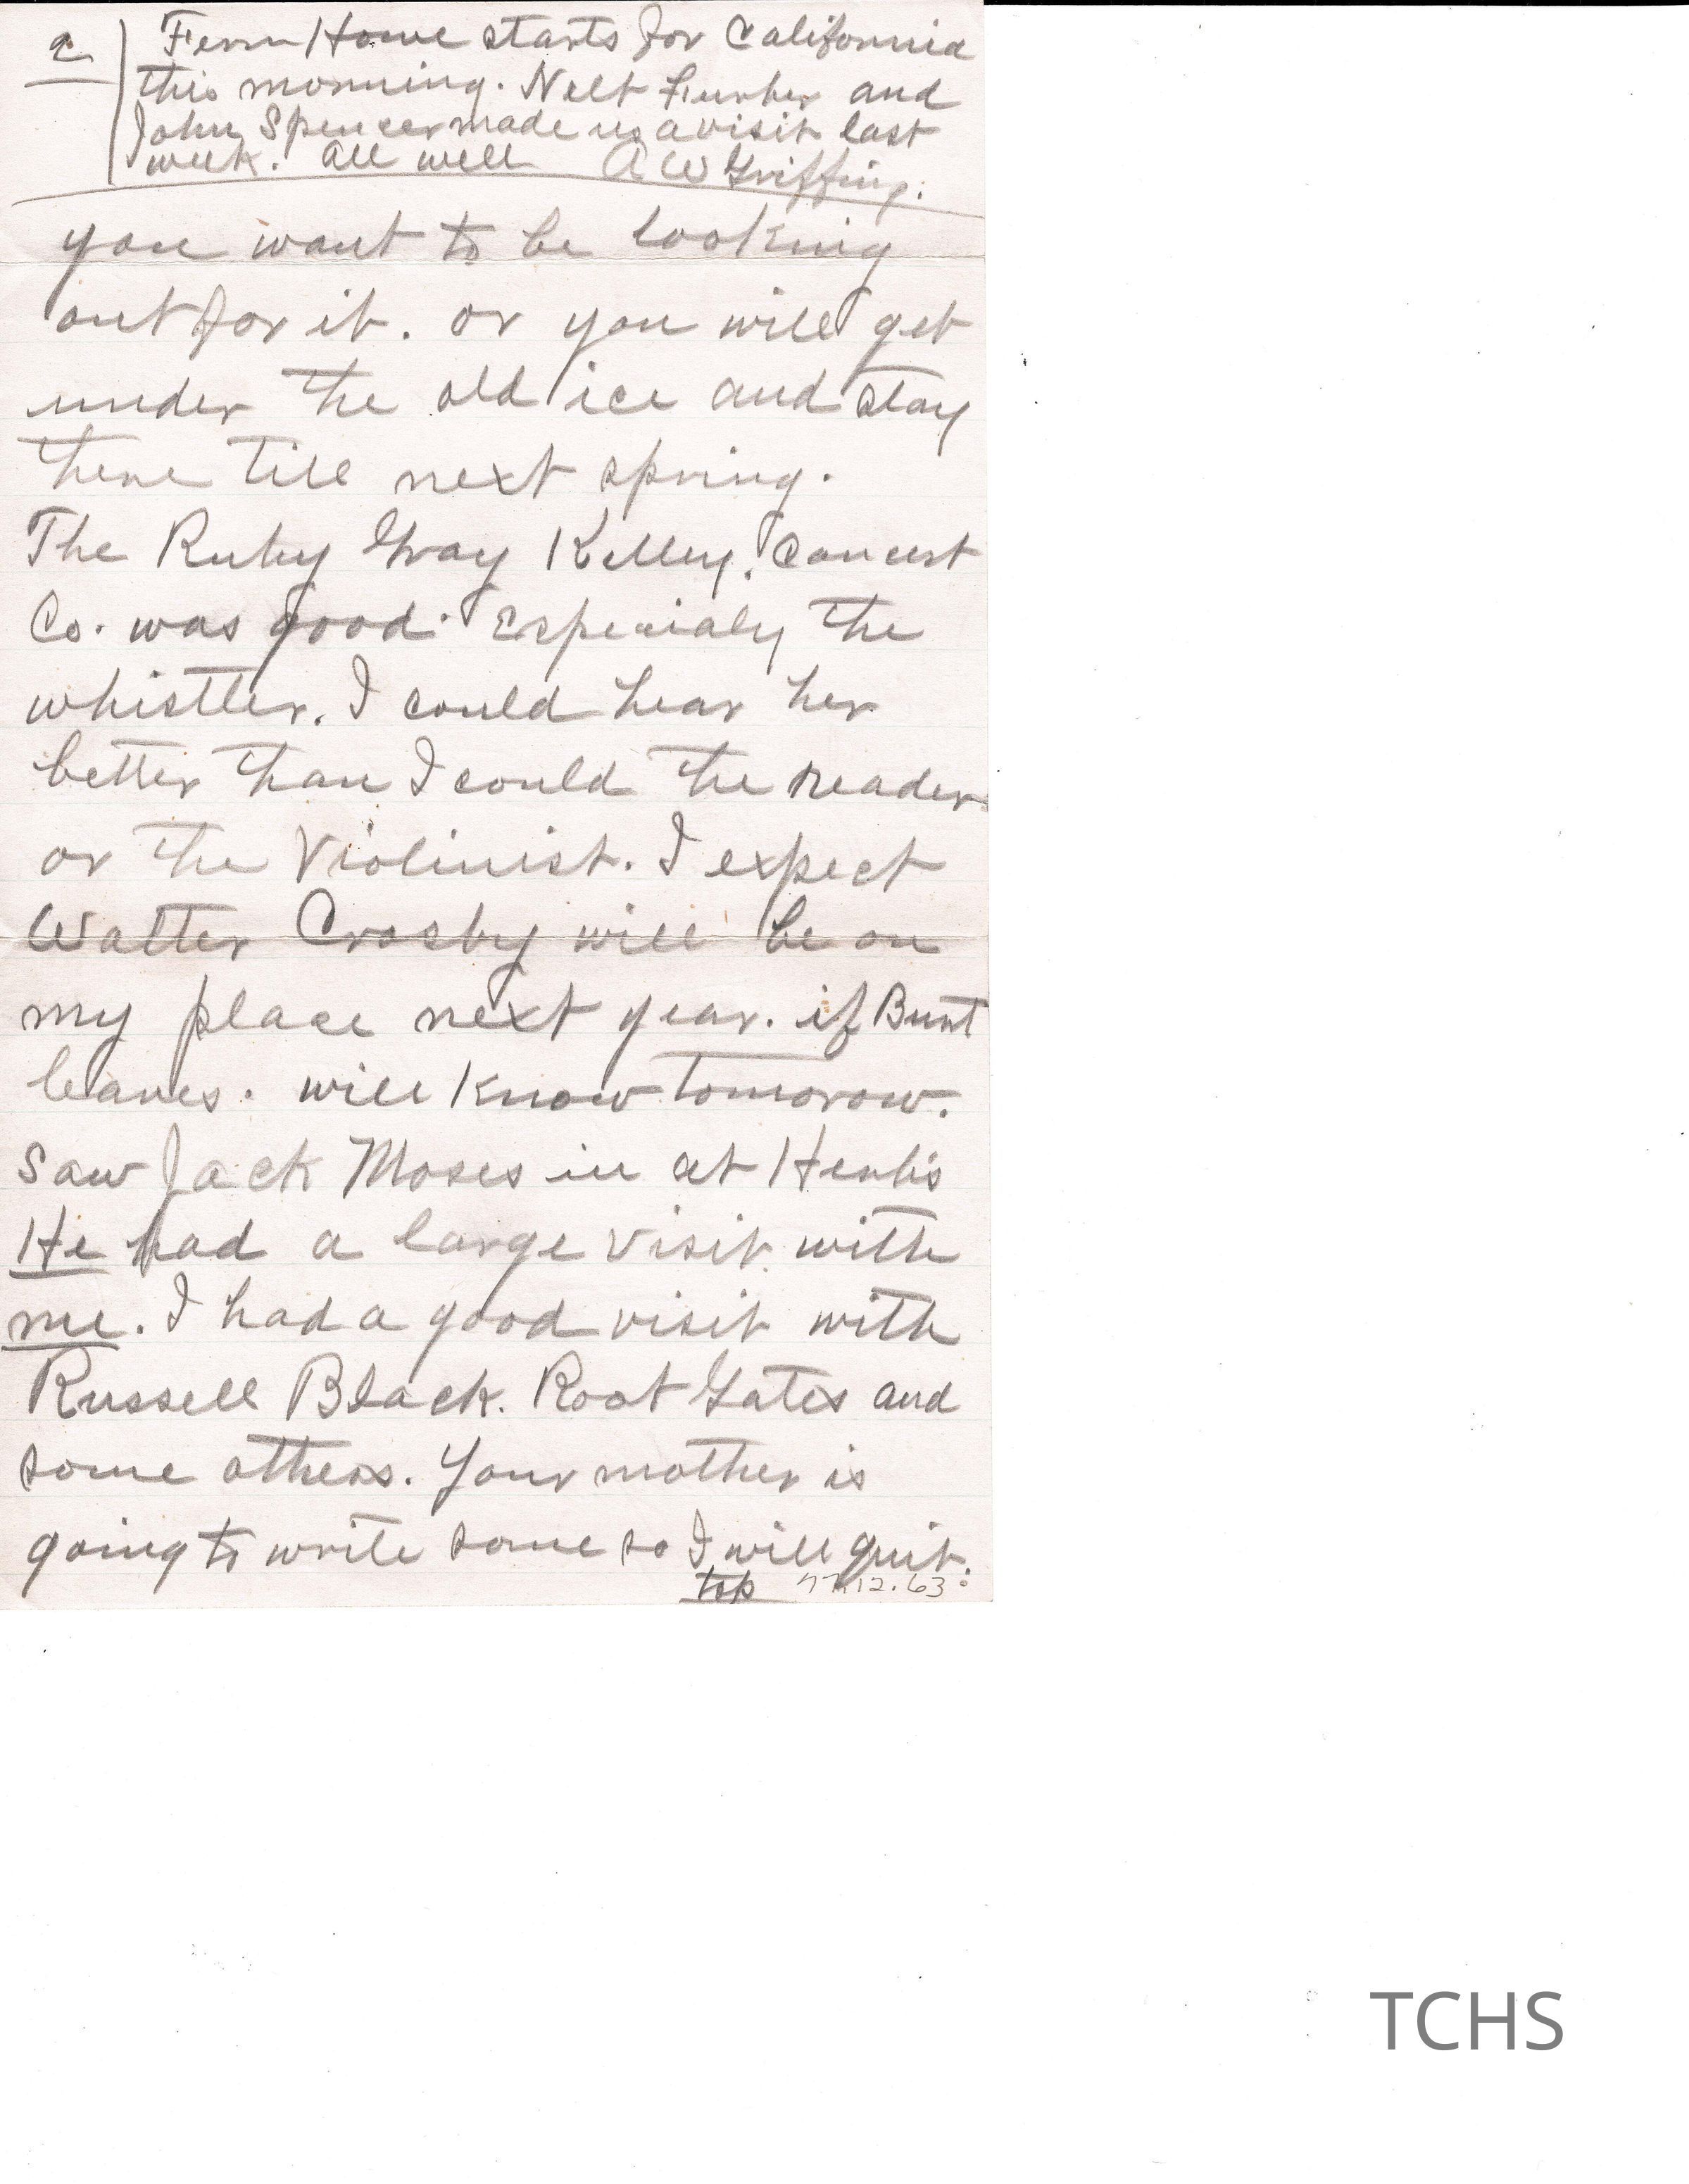 2
Fern Howe starts for California
this morning. Nelt Furber and
John Spencer made us a visit last
week. all well A W Griffing.
you want to be looking
out for it. or you will get
under the old ice and stay
there till next spring.
The Ruby Gray Kelley. Concert
Co. was good. Especialy the
whistler. I could hear her
better than I could the reader
or the Violinist. I expect
Walter Crosby will be on
my place next year. if Burt
leaves. will know tomorow.
Saw Jack Moses in at Herb's
He had a large visit with
me. I had a good visit with
Russell Black. Root Gates and
some others. Your mother is
going to write some so I will quit.
top 77.12.63
TCHS